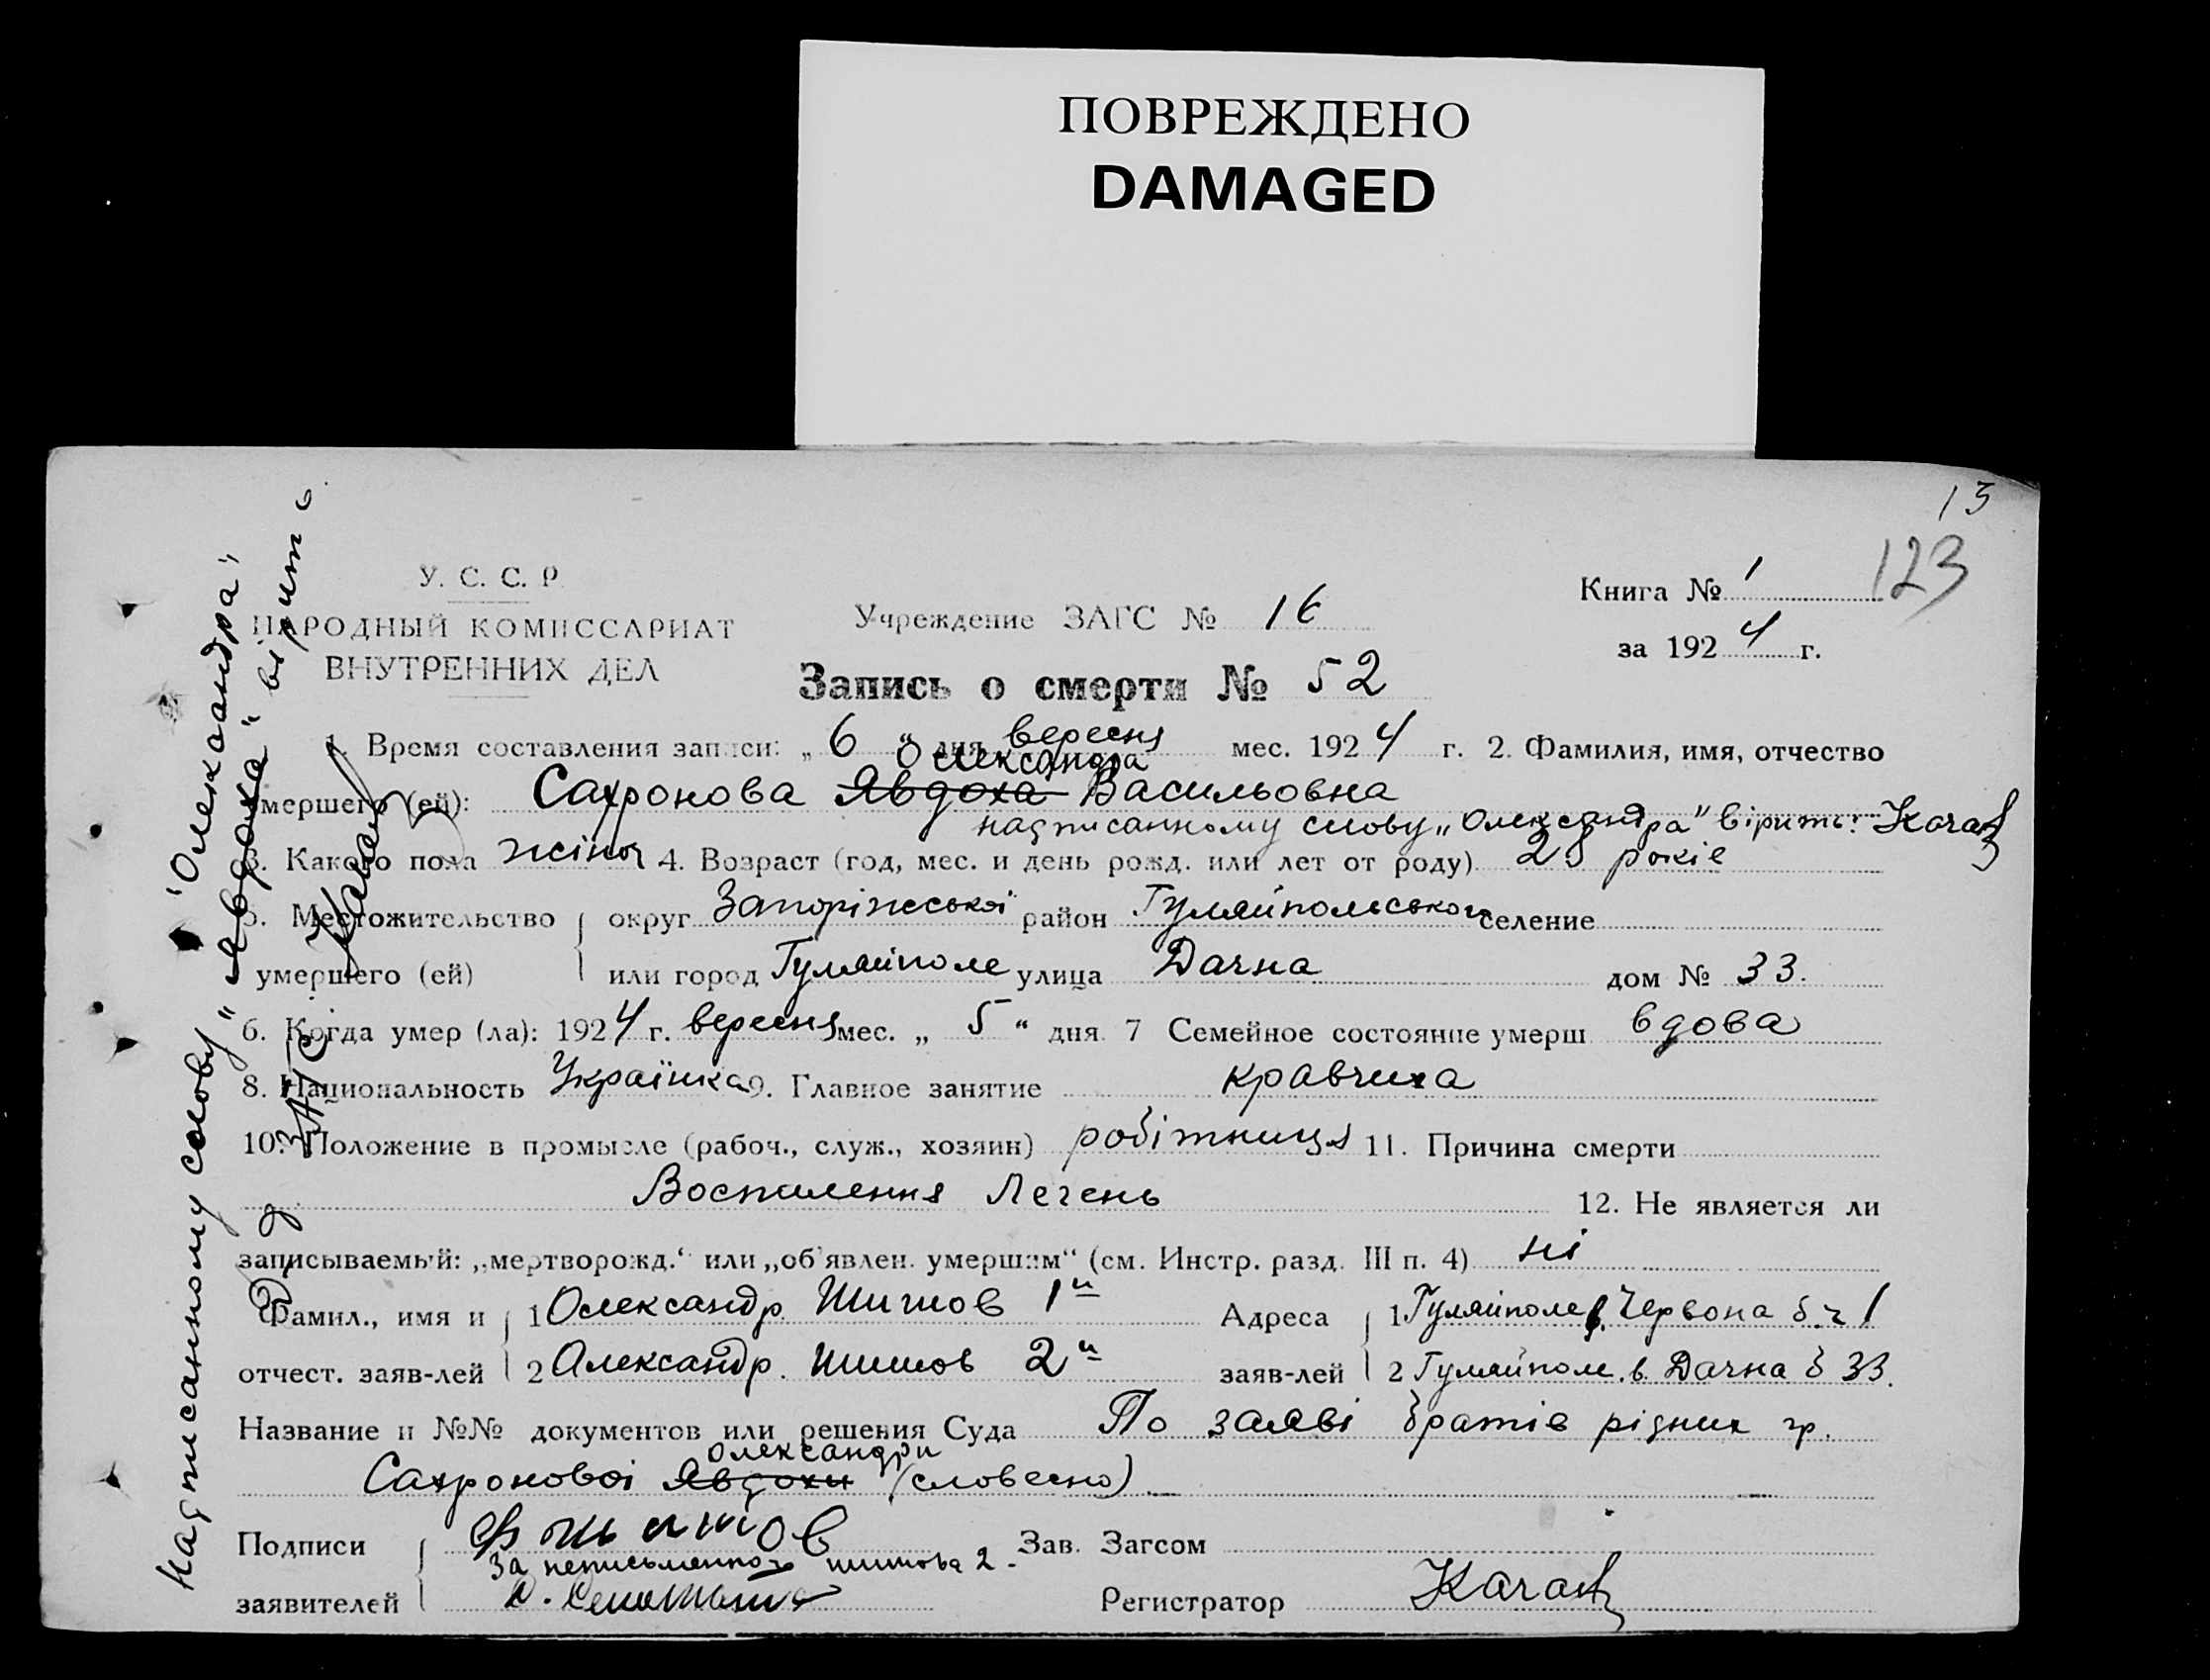 ПОВРЕЖДЕНО
DAMAGED
13
123
У. С. С. Р.
НАРОДНЫЙ КОМИССАРИАТ
ВНУТРЕННИХ ДЕЛ
Учреждение ЗАГС № 16
Книга № 1
за 1924 г.
Запись о смерти № 52
1. Время составления записи: „6“ дня вересня мес. 1924 г. 2. Фамилия, имя, отчество
Олександра
умершего (ей): Сахронова Явдоха Васильовна
надписанному слову „Олександра" вірить:
3. Какого пола жіноч 4. Возраст (год, мес. и день рожд. или лет от роду) 28 років
5. Местожительство округ Запоріжської район Гуляйпольського селение
умершего (ей) или город Гуляйполе улица Дачна дом № 33.
6. Когда умер (ла): 1924 г. вересня мес. „5“ дня. 7 Семейное состояние умерш вдова
8. Национальность Українка 9. Главное занятие кравчиха
10. Положение в промысле (рабоч., служ., хозяин) робітниця 11. Причина смерти
Воспилення Легень
12. Не является ли
записываемый: „мертворожд.“ или „об'явлен. умершим“ (см. Инстр. разд. III п. 4) ні
Фамил., имя и 1 Олександр Шишов 1й Адреса 1 Гуляйполе в. Червона б. ч 1
отчест. заяв-лей 2 Александр Шишов 2й заяв-лей 2 Гуляйполе. в. Дачна б 33.
Название и №№ документов или решения Суда По заяві братів рідних гр.
Олександри
Сахронової Явдохи (словесно)
Подписи Шишов Зав. Загсом
За неписьменного шишова 2
заявителей Регистратор
Надписанному слову „Олександра"
„Явдоха" вірить